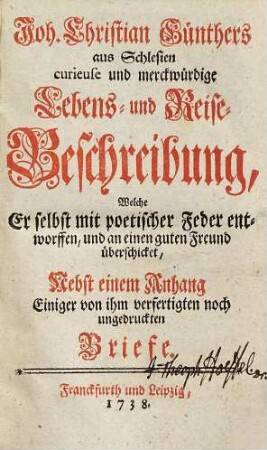 Joh. Christian Günthers
aus Schlesien
curieuse und merckwürdige
Lebens- und Reise-
Beschreibung,
Welche
Er selbst mit poetischer Feder ent-
worffen, und an einen guten Freund
überschicket,
Nebst einem Anhang
Einiger von ihm verfertigten noch
ungedruckten
Briefe.
Franckfurth und Leipzig,
1738.